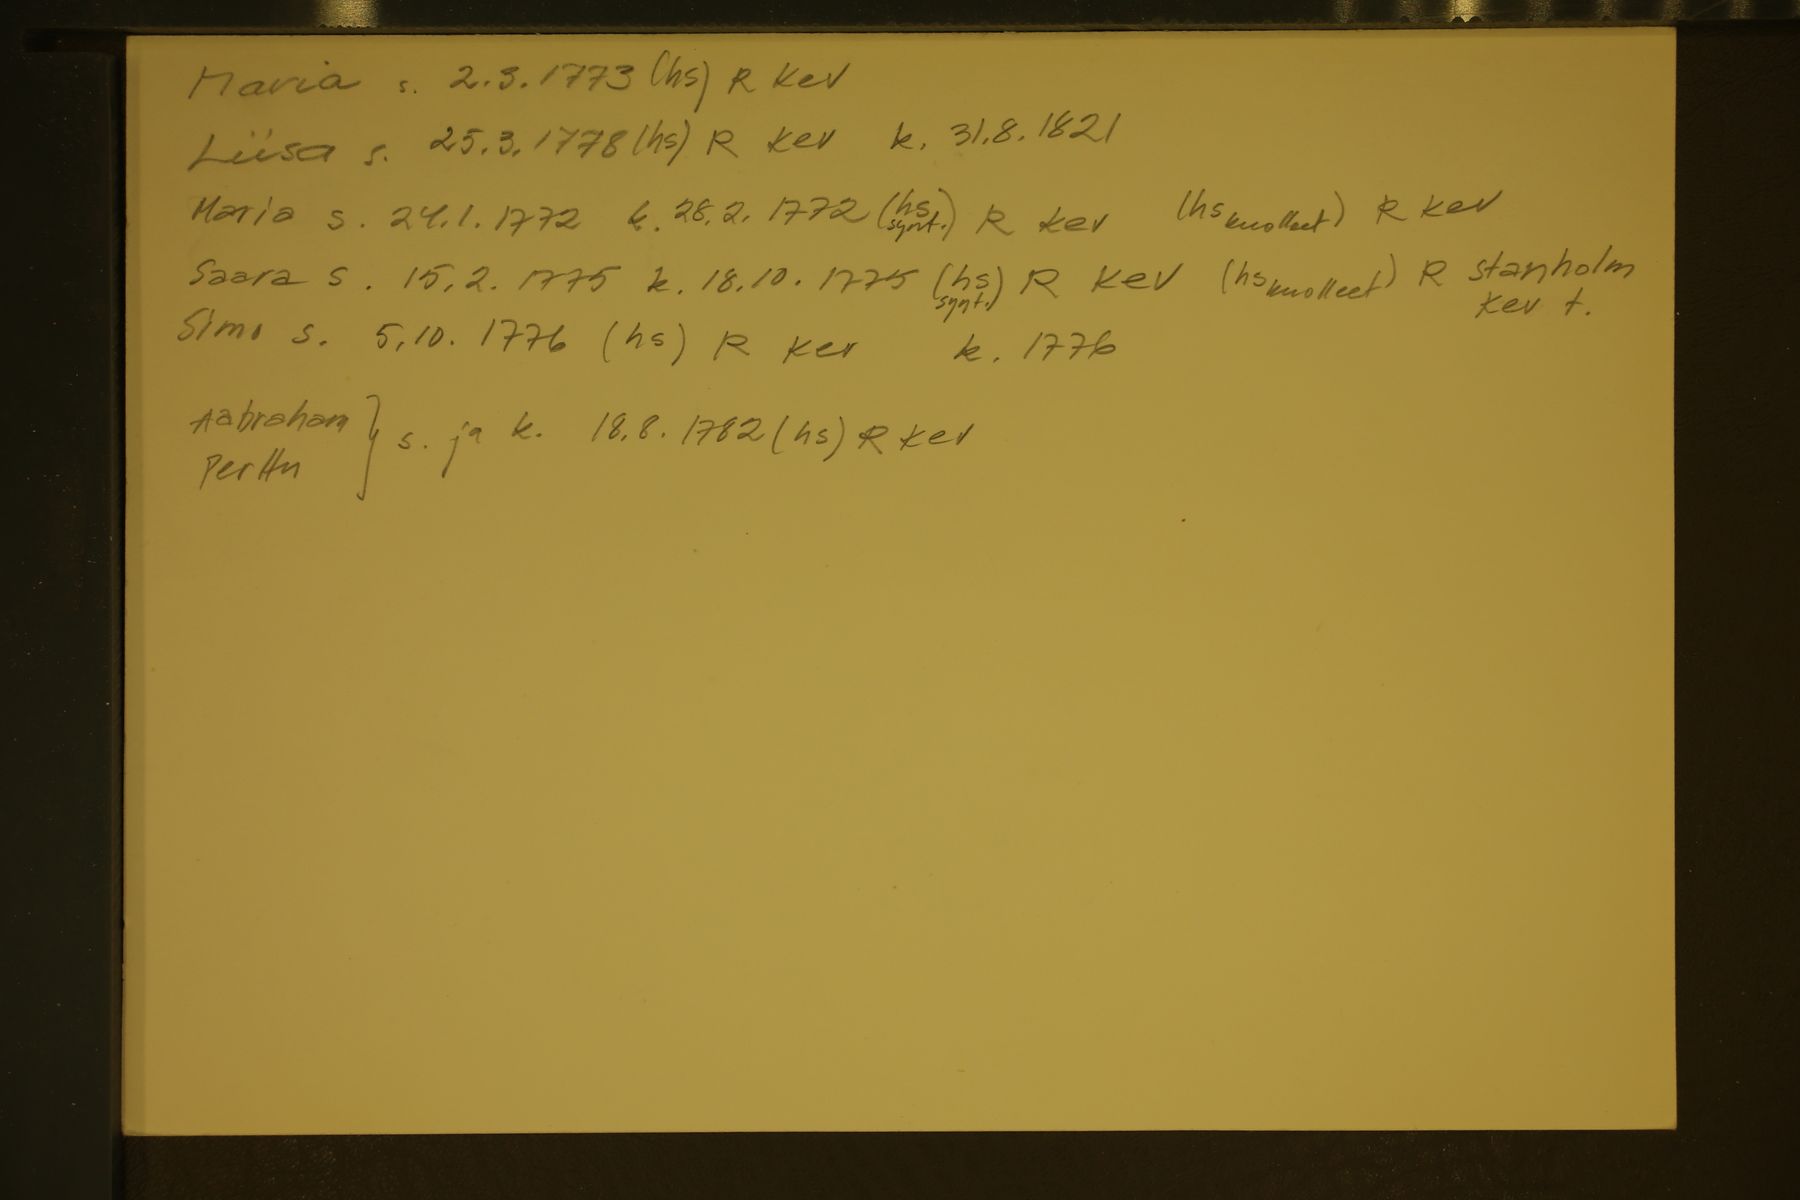 Maria s. 2.3.1773 (hs) R Kev
Liisa s. 25.3.1778 (hs) R Kev k. 31.8.1821
Maria s. 24.1.1772 k. 28.2.1772 (hs synt.) R Kev (hs kuolleet) R Kev
Saara s. 15.2.1775 k. 18.10.1775 (hs synt.) R Kev (hs kuolleet) R Stanholm
Kev t.
Simo s. 5.10.1776 (hs) R Kev k. 1776
Aabraham } s. ja k. 18.8.1782 (hs) R Kev
Perttu